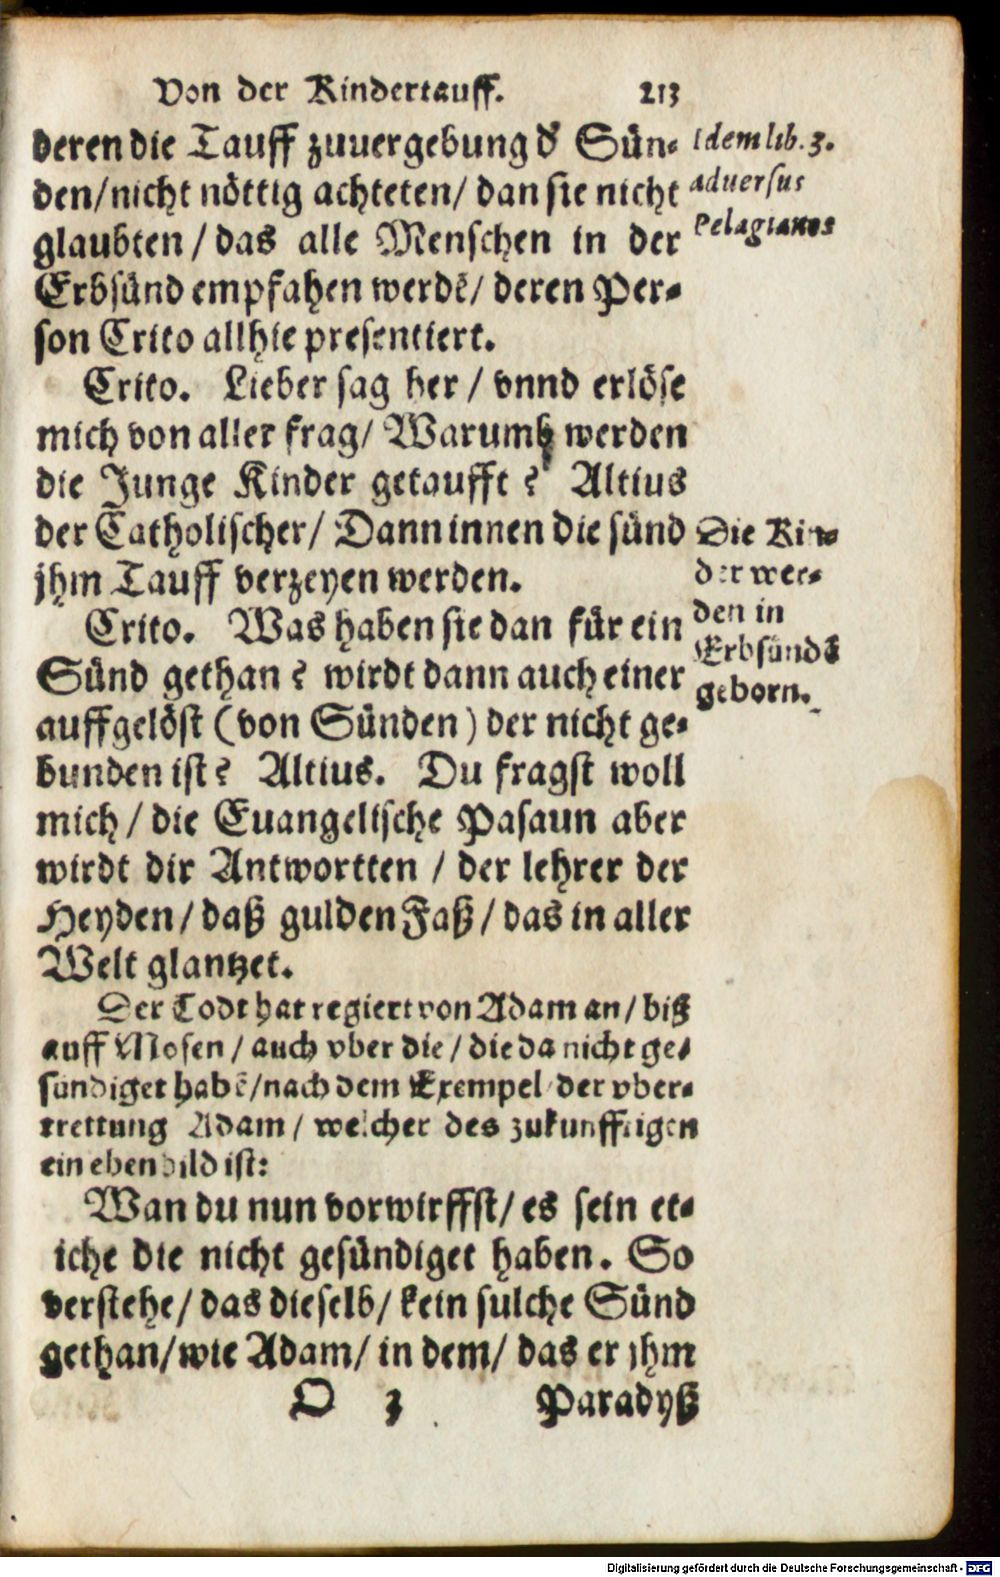 Von der Kindertauff. 213
deren die Tauff zuuergebung d̕ Sün-
den/nicht nöttig achteten/ dan sie nicht
glaubten / das alle Menschen in der
Erbsünd empfahen werdē/ deren Per-
son Crito allhie presentiert.
Idem lib. 3.
aduersus
Pelagianos
Crito. Lieber sag her / vnnd erlöse
mich von aller frag/ Warumb werden
die Junge Kinder getaufft? Altius
der Catholischer/ Dann innen die sünd
jhm Tauff verzeyen werden.
Crito. Was haben sie dan für ein
Sünd gethan? wirdt dann auch einer
auffgelöst (von Sünden) der nicht ge-
bunden ist? Altius. Du fragst woll
mich / die Euangelische Pasaun aber
wirdt dir Antwortten / der lehrer der
Heyden/ daß gulden Faß/ das in aller
Welt glantzet.
Die Kin-
der wer-
den in
Erbsündē
geborn.
Der Todt hat regiert von Adam an/ biß
auff Mosen / auch vber die / die da nicht ge-
sündiget habē/nach dem Exempel der vber-
trettung Adam / welcher des zukunfftigen
ein ebenbild ist:
Wan du nun vorwirffst/ es sein et-
iche die nicht gesündiget haben. So
verstehe/ das dieselb/ kein sulche Sünd
gethan/wie Adam/ in dem/ das er jhm
O 3 Paradyß
Digitalisierung gefördert durch die Deutsche Forschungsgemeinschaft - DFG